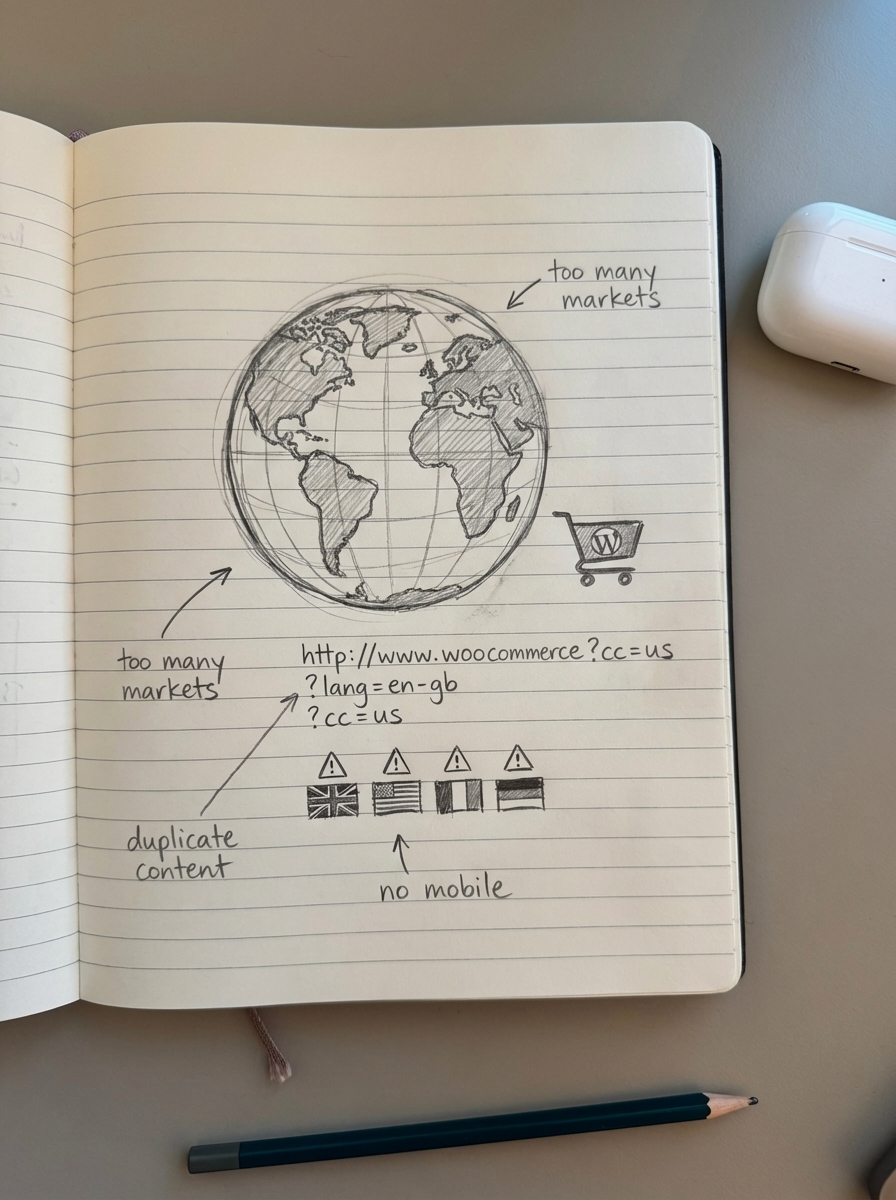 too many
markets
too many
markets
http://www.woocommerce?cc=us
?lang=en-gb
?cc=us
duplicate
content
no mobile
W